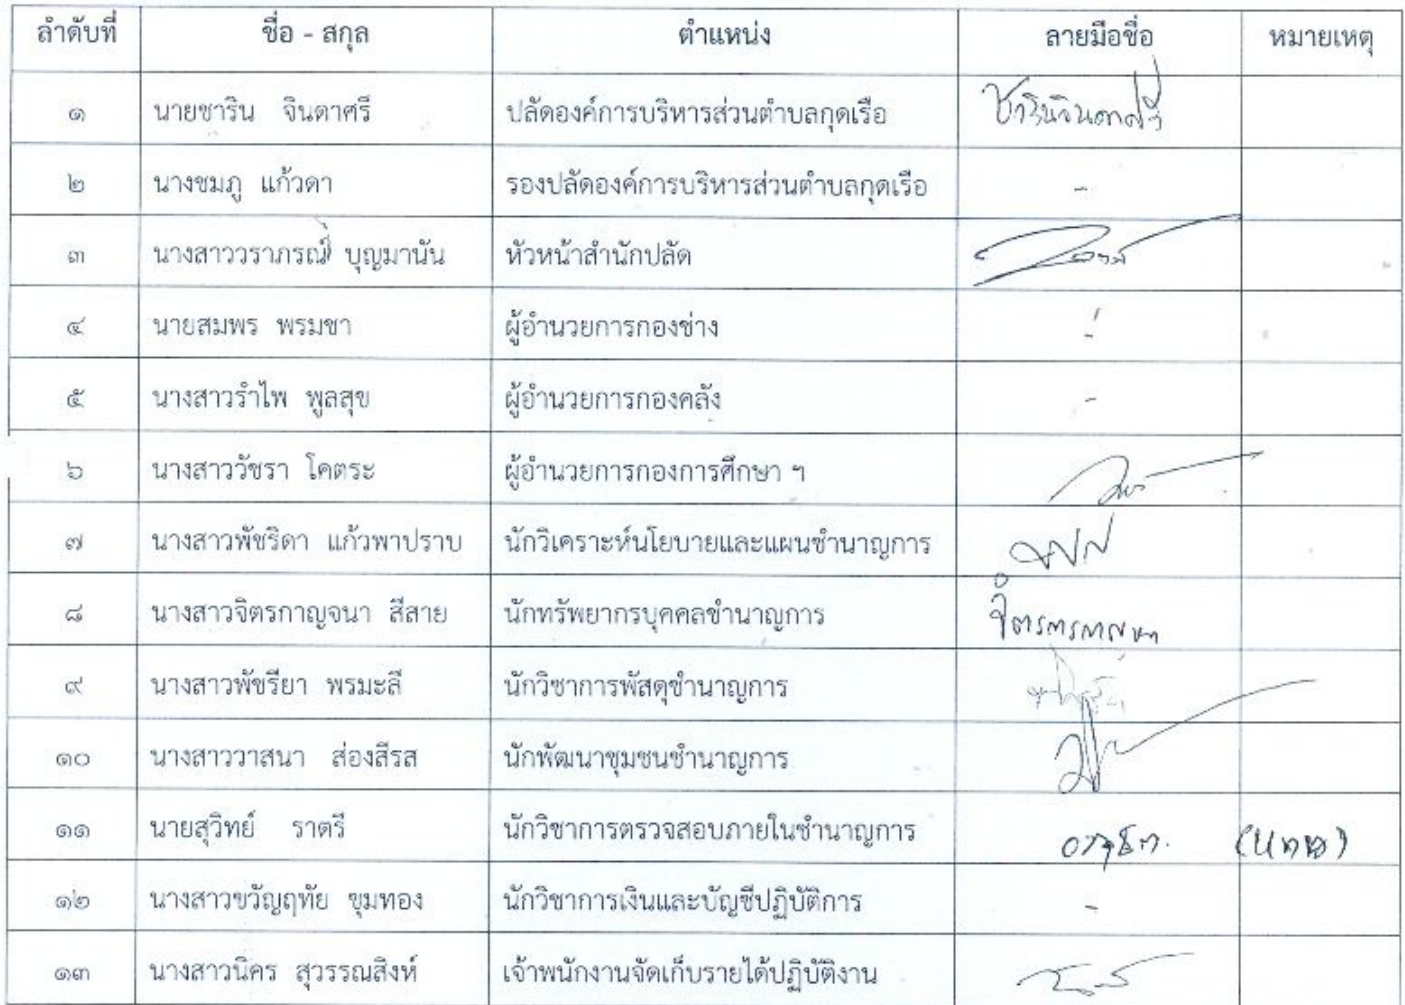 ลำดับที่ ชื่อ - สกุล ตำแหน่ง ลายมือชื่อ หมายเหตุ
๑ นายชาริน จินดาศรี ปลัดองค์การบริหารส่วนตำบลกุดเรือ ชารินจินดาศรี
๒ นางชมภู แก้วดา รองปลัดองค์การบริหารส่วนตำบลกุดเรือ -
๓ นางสาววราภรณ์ บุญมานัน หัวหน้าสำนักปลัด
๔ นายสมพร พรมชา ผู้อำนวยการกองช่าง -
๕ นางสาวรำไพ พูลสุข ผู้อำนวยการกองคลัง -
๖ นางสาววัชรา โคตระ ผู้อำนวยการกองการศึกษา ฯ
๗ นางสาวพัชริดา แก้วพาปราบ นักวิเคราะห์นโยบายและแผนชำนาญการ
๘ นางสาวจิตรกาญจนา สีสาย นักทรัพยากรบุคคลชำนาญการ
๙ นางสาวพัชรียา พรมะลี นักวิชาการพัสดุชำนาญการ
๑๐ นางสาววาสนา ส่องสีรส นักพัฒนาชุมชนชำนาญการ
๑๑ นายสุวิทย์ ราตรี นักวิชาการตรวจสอบภายในชำนาญการ (แทน)
๑๒ นางสาวขวัญฤทัย ขุมทอง นักวิชาการเงินและบัญชีปฏิบัติการ -
๑๓ นางสาวนิคร สุวรรณสิงห์ เจ้าพนักงานจัดเก็บรายได้ปฏิบัติงาน